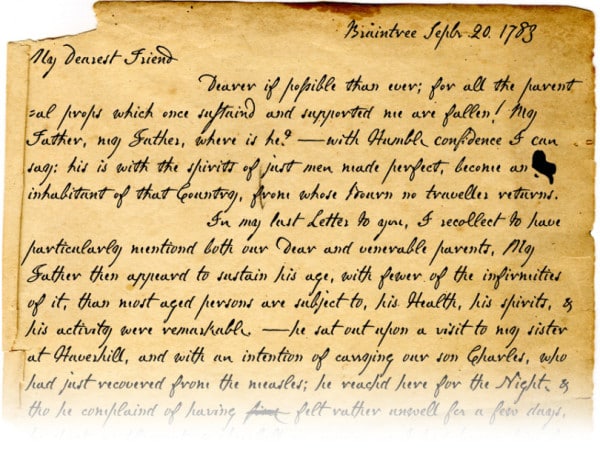 Braintree Sepbr 20. 1783
My Dearest Friend
Dearer if poſsible than ever; for all the parent
=al props which once suſtaind and supported me are fallen! My
Father, my Father, where is he? —with Humble confidence I can
say: his is with the spirits of just men made perfect, become an
inhabitant of that Country, frome whose Bourn no traveller returns.
In my last Letter to you, I recollect to have
particularly mentiond both our Dear and venerable parents, My
Father then appeard to sustain his age, with fewer of the infirmities
of it, than most aged persons are subject to, his Health, his spirits, &
his activity were remarkable —he sat out upon a visit to my sister
at Haverhill, and with an intention of carrying our son Charles, who
had just recovered frome the measles; he reachd here for the Night, &
tho he complaind of having felt rather unwell for a few days,